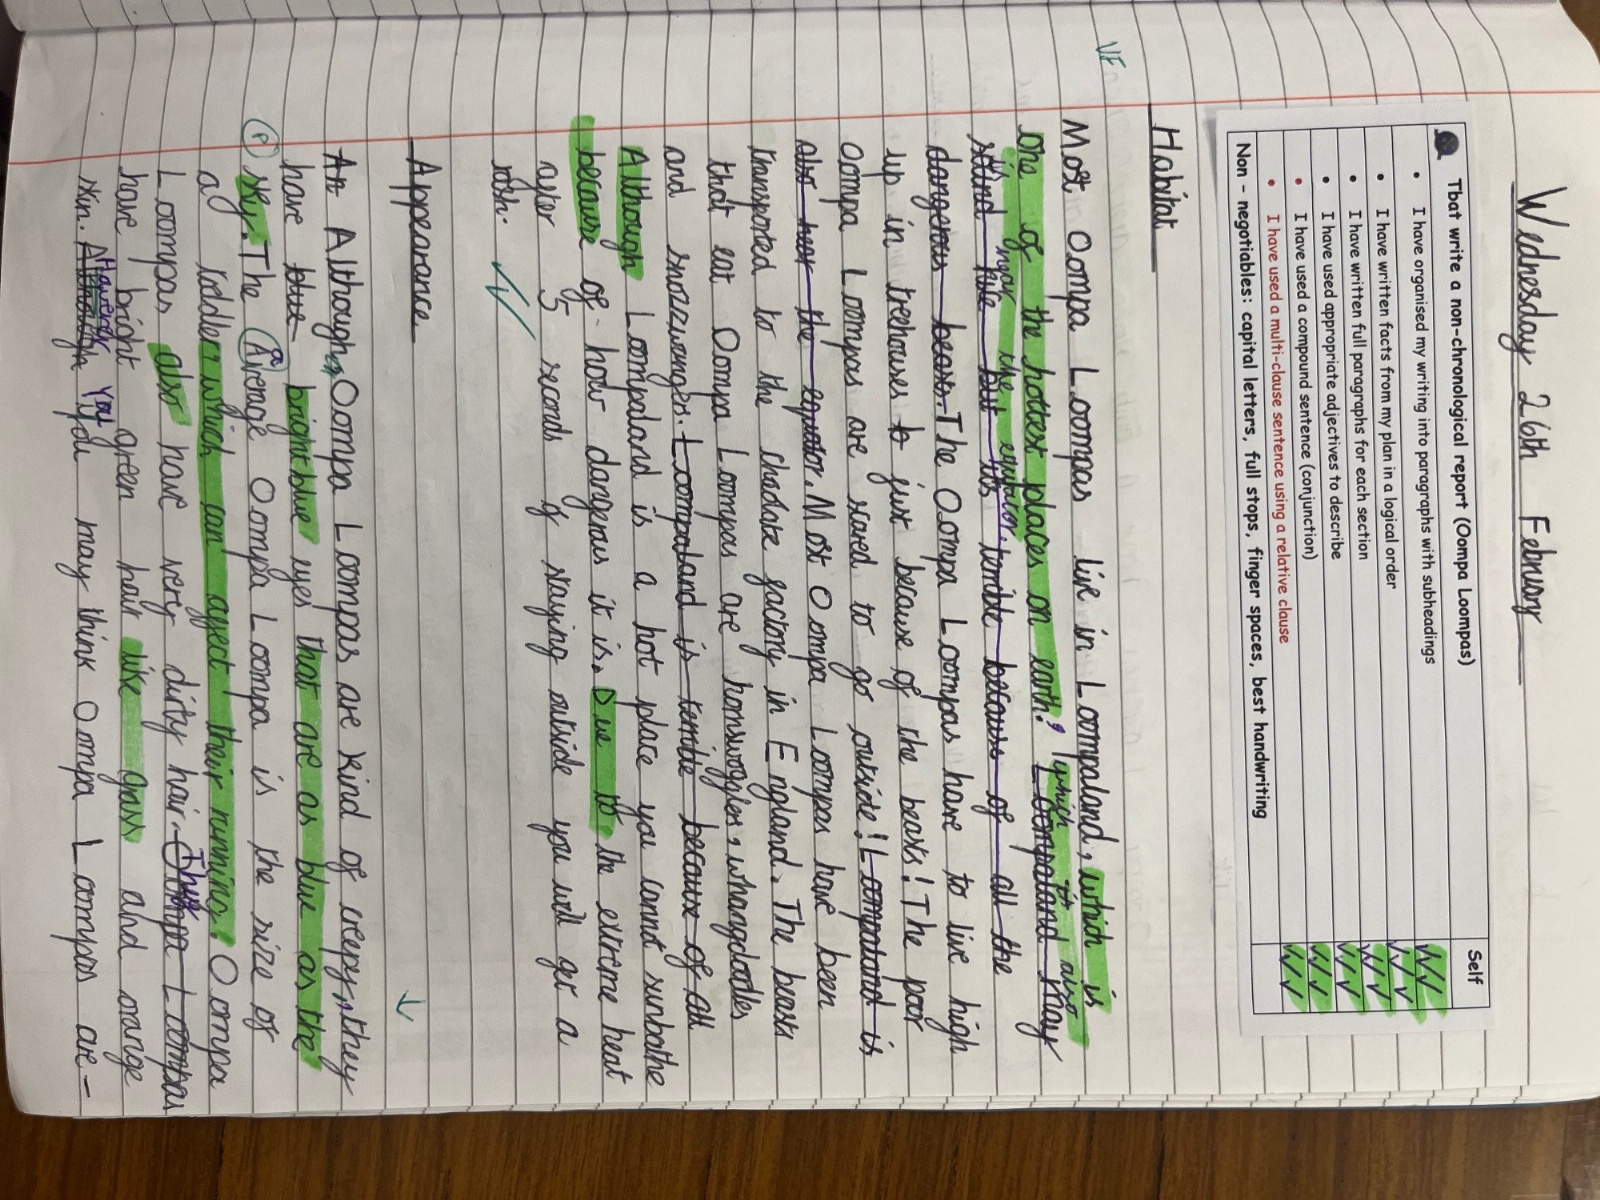 Wednesday 26th February
Tbat write a non-chronological report (Oompa Loompas)
Self
• I have organised my writing into paragraphs with subheadings
• I have written facts from my plan in a logical order
• I have written full paragraphs for each section
• I have used appropriate adjectives to describe
• I have used a compound sentence (conjunction)
• I have used a multi-clause sentence using a relative clause
Non - negotiables: capital letters, full stops, finger spaces, best handwriting
VF
Habitat
Most Oompa Loompas live in Loompaland, which is
one of the hottest places on earth!, which is also
is near the equator. Loompaland may
stand tule but its terrible because of all the
dangerous beasts. The Oompa Loompas have to live high
up in treehouses b just because of the beasts! The poor
Oompa Loompas are scared to go outside! Loompaland is
also near the equator. Most Oompa Loompas have been
transported to the choclate factory in England. The beasts
that eat Oompa Loompas are hornswogglers, whangdoodles
and snozzwangers. Loompaland is terrible because of all
Although Loompaland is a hot place you cannot sunbathe
because of how dangerous it is. Due to the extreme heat
after 5 seconds of staying outside you will get a
rash.
Appearance
An Although, Oompa Loompas are kind of creepy, they
have blue bright blue eyes that are as blue as the
sky. The Average Oompa Loompa is the size of
a toddler which can affect their running. Oompa
Loompas also have very dirty hair. Oompa Loompas
They have bright green hair like grass and orange
skin. Although However You you may think Oompa Loompas are-